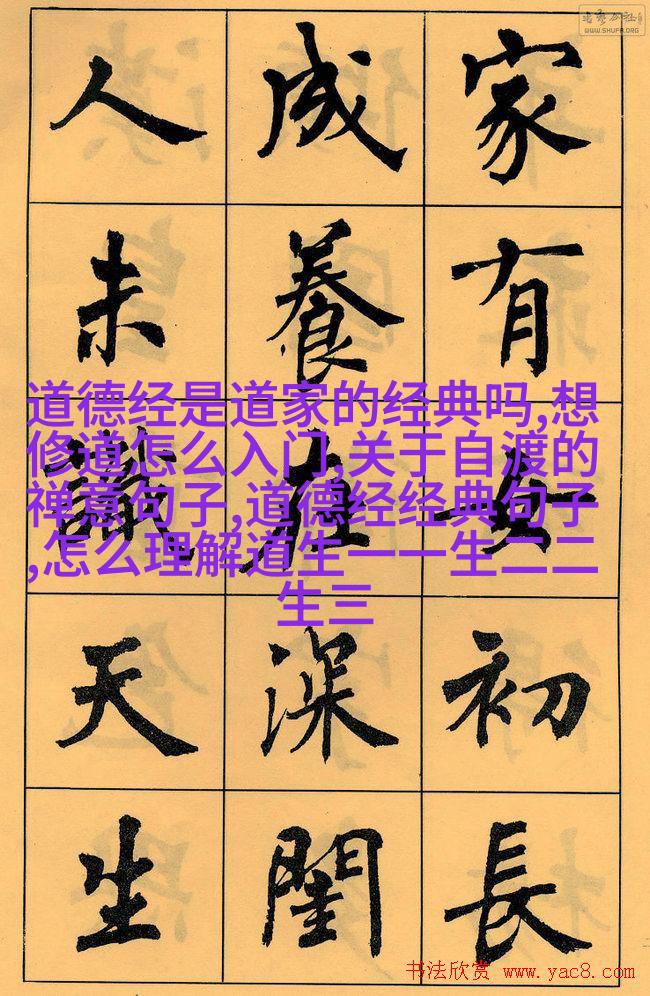 WWW.SHUFA.ORG
家有女初長
成養在深閨
人未識天生
道德经是道家的经典吗,想
修道怎么入门,关于自渡的
禅意句子,道德经经典句子
,怎么理解道生一一生二二
生三
书法欣赏 www.yac8.com